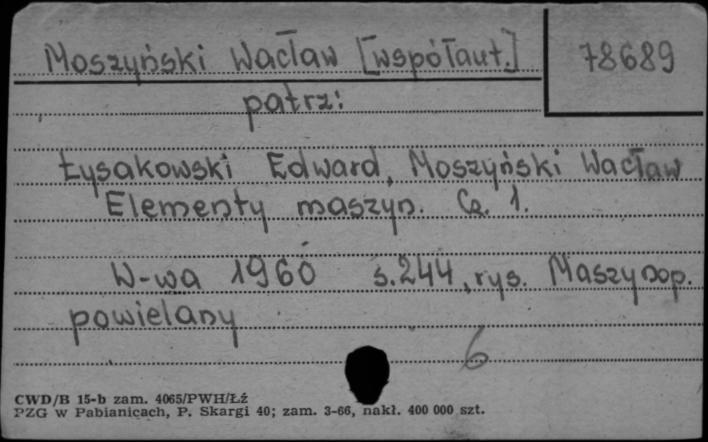 Moszyński Wacław [współaut.] 78689
patrz:
Łysakowski Edward, Moszyński Wacław
Elementy maszyn. Cz. 1.
W-wa 1960 s.244, rys. Maszynop.
powielany
6
CWD/B 15-b zam. 4065/PWH/Łź
PZG w Pabianicach, P. Skargi 40; zam. 3-66, nakł. 400 000 szt.